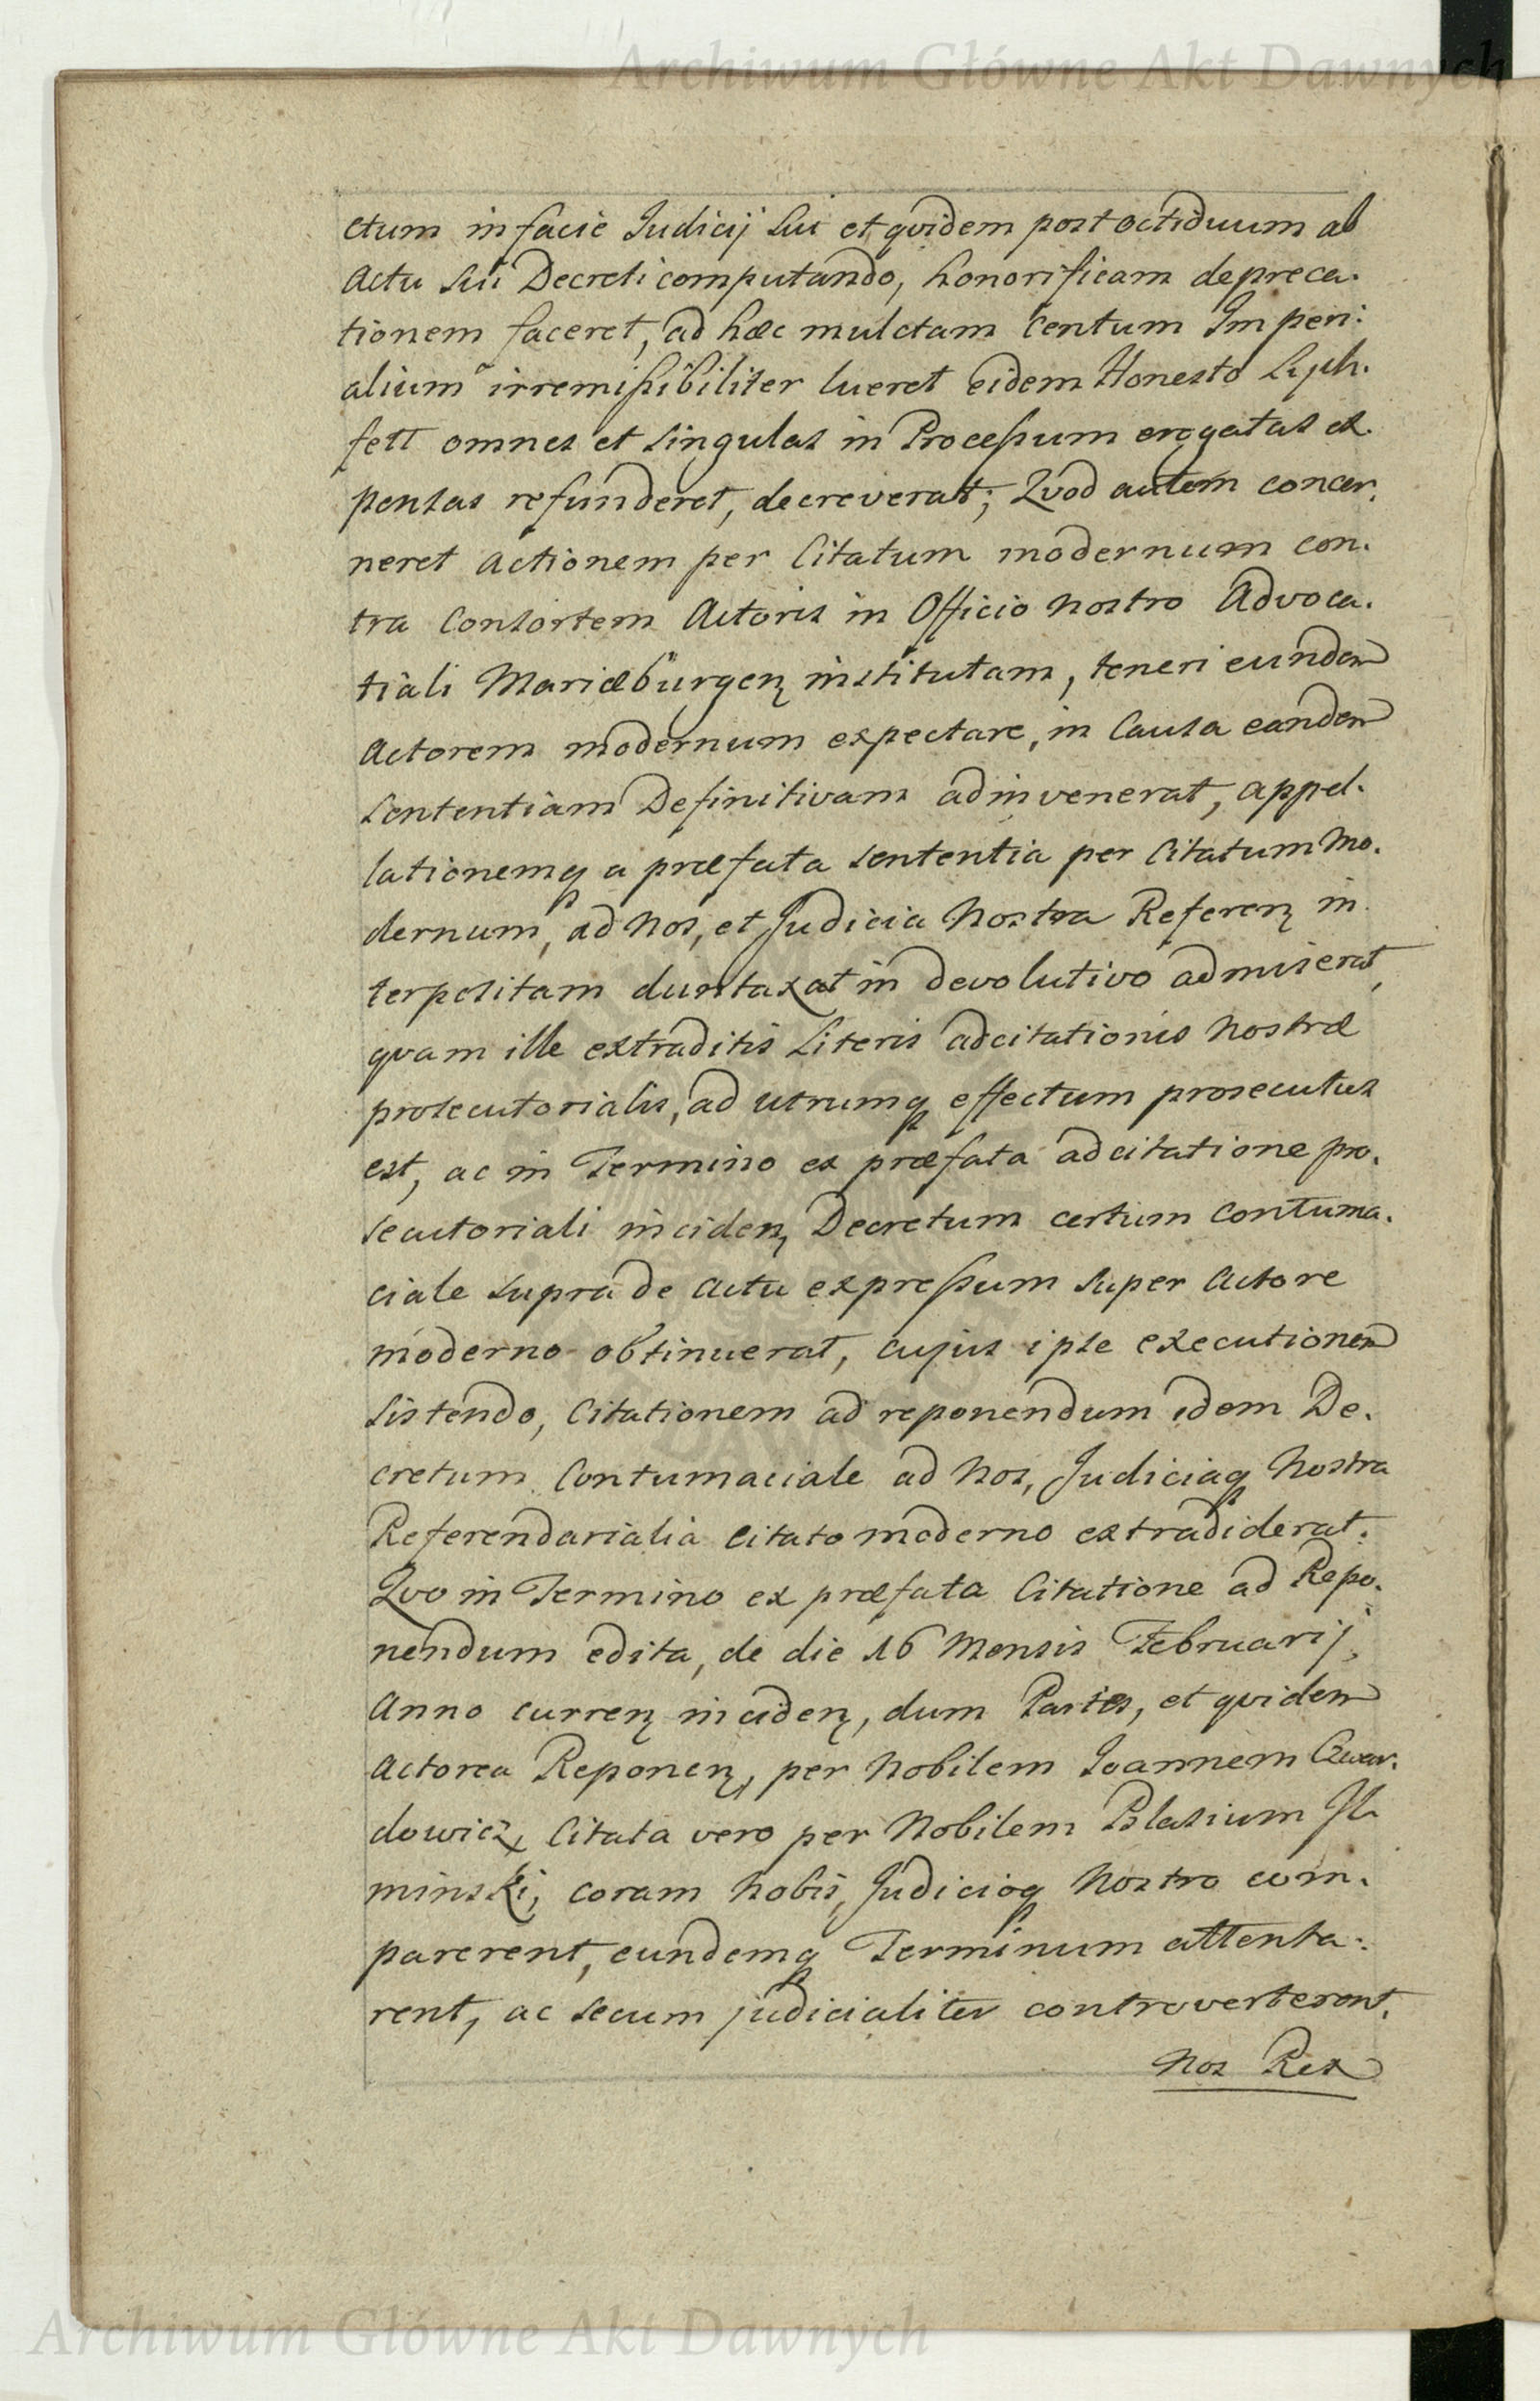 Archiwum Główne Akt Dawnych
ctum in facie Judicij sui et qvidem post octiduum ab
actu sui Decreti computando, honorificam depreca-
tionem faceret, ad hæc mulctam Centum Imperi-
alium irremissibiliter lueret eidem Honesto
fett omnes et singulas in Processum erogatas ex-
pensas refunderet, decreverat; Qvod autem concer-
neret actionem per Citatum modernum con-
tra Consortem Actoris in Officio Nostro Advoca-
tiali Mariæburgen institutam, teneri eundem
Actorem modernum expectare, in Causa eandem
sententiam Definitivam adinvenerat, appel-
lationemq a præfata sententia per Citatum Mo-
dernum, ad Nos, et Judicia Nostra Referen in-
terpositam duntaxat in devolutivo admiserat,
qvam ille extraditis Literis adcitationis Nostræ
prosecutorialis, ad utrumq effectum prosecutus
est, ac in Termino ex præfata adcitatione pro-
secutoriali inciden Decretum certum Contuma-
ciale supra de actu expressum super Actore
moderno obtinuerat, cujus ipse executionem
sistendo, Citationem ad reponendum idem De-
cretum Contumaciale ad Nos, Judiciaq Nostra
Referendarialia Citato moderno extradiderat.
Qvo in Termino ex præfata Citatione ad Repo-
nendum edita, de die 16 Mensis Februarij,
Anno curren inciden, dum Partes, et qvidem
Actorea Reponen, per Nobilem Joannem
dowicz, Citata vero per Nobilem Blasium Jl-
minski, coram Nobis, Judicioq Nostro com-
parerent, eundemq Terminum attenta-
rent, ac secum judicialiter controverterent.
Nos Rex
Archiwum Główne Akt Dawnych